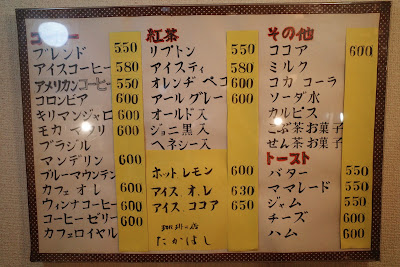 コーヒー
ブレンド 550
アイスコーヒー 580
アメリカンコーヒー 550
コロンビア 600
キリマンジャロ 600
モカ マタリ 600
ブラジル
マンデリン 600
ブルーマウンテン
カフェ オレ 600
ウィンナコーヒー 600
コーヒーゼリー 600
カフェロイヤル
紅茶
リプトン 550
アイスティ 580
オレンヂ ペコ 600
アールグレー 600
オールド入
ジョニ黒入
ヘネシー入
ホットレモン 600
アイス オ.レ 630
アイス ココア 650
珈琲の店
たかはし
その他
ココア 600
ミルク
コカ コーラ
ソーダ水
カルピス
こぶ茶お菓子
せん茶お菓子
トースト
バター 550
ママレード 550
ジャム 550
チーズ 600
ハム 600